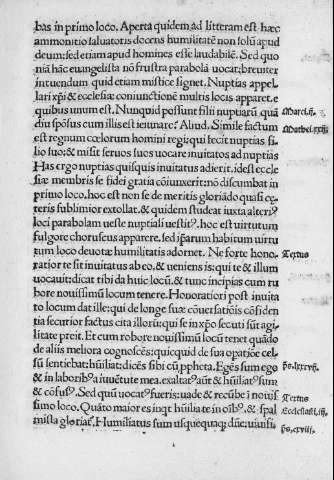 bas in primo loco. Aperta quidem ad litteram est hæc
ammonitio saluatoris docens humilitatē non solū apud
deum: sed etiam apud homines esse laudabilē. Sed quo
niā hāc euangelista nō frustra parabolā uocat; breuiter
intuendum quid etiam mistice signet. Nuptias appel
lari xp̄i & ecclesiæ coniunctionē multis locis apparet. e
quibus unum est. Nunquid possunt filii nuptiarū quā
diu spōsus cum illis est ieiunare? Aliud. Simile factum
est regnum cœlorum homini regi: qui fecit nuptias fi
lio suo: & misit seruos suos uocare inuitatos ad nuptias
Has ergo nuptias quisquis inuitatus adierit. idest eccle
siæ membris se fidei gratia cōiunxerit: nō discumbat in
primo loco, hoc est non se de meritis gloriādo quasi ce
teris sublimior extollat. & quidem studeat iuxta alteri⁹
loci parabolam ueste nuptiali uestit⁹. hoc est uirtutum
fulgore choruscus apparere. sed ip̄arum habitum uirtu
tum loco deuotæ humilitatis adornet. Ne forte hono⸗
ratior te sit inuitatus ab eo, & ueniens is: qui te & illum
uocauit: dicat tibi da huic locū. & tunc incipias cum ru
bore nouissimū locum tenere. Honoratiori post inuita
to locum dat ille: qui de longæuæ cōuersatiōis cōfiden
tia securior factus cita illorū: qui se in xp̄o secuti sūt agi
litate preit. Et cum robore nouissimū locū tenet quādo
de aliis meliora cognoscēs: quicquid de sua opatiōe cel
sū sentiebat: hūiliat: dicēs sibi cū ppheta. Egēs sum ego
& in laborib⁹ a iuuētute mea. exaltat⁹ aūt & hūiliat⁹ sum
& cōfus⁹. Sed quū uocat⁹ fueris: uade & recūbe ī nouis
simo loco. Quāto maior es inqt hūilia te in oīb⁹ & spal
Humiliatus sum usquequaq; dn̄e: uiuifi⸗
Textus
Textus